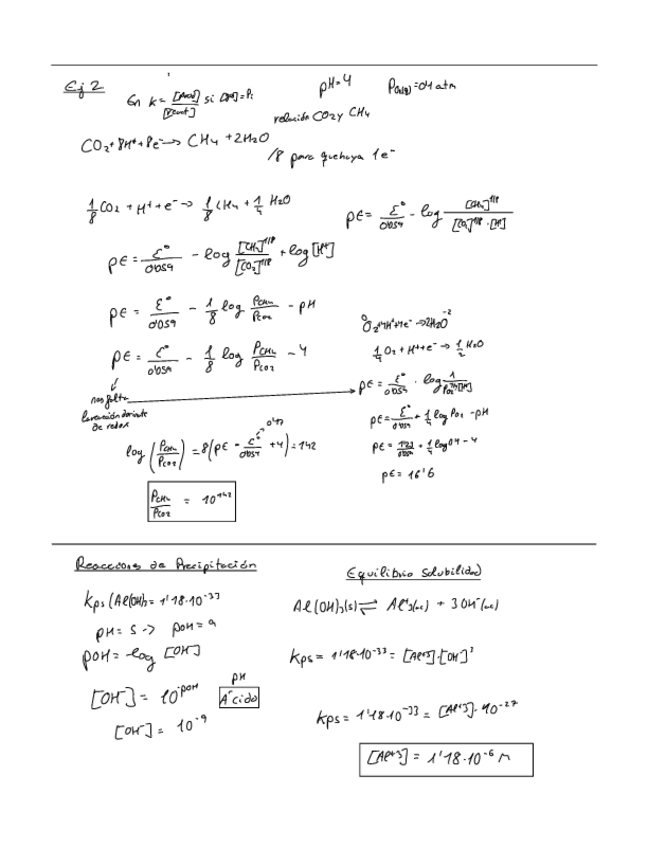 Ej 2
En k = [Prod]/[React] si [Prod] = Pi
pH=4
PO2(g) = 0'1 atm
relación CO2 y CH4
CO2 + 8H+ + 8e- -> CH4 + 2H2O
/8 para que haya 1e-
1/8 CO2 + H+ + e- -> 1/8 CH4 + 1/4 H2O
pE = E°/0'059 - log [CH4]^1/8 / [CO2]^1/8 · [H+]
pE = E°/0'059 - log [CH4]^1/8 / [CO2]^1/8 + log [H+]
pE = E°/0'059 - 1/8 log PCH4/PCO2 - pH
pE = E°/0'059 - 1/8 log PCH4/PCO2 - 4
nos falta
la reacción
de redox
log (PCH4/PCO2) = 8(pE - E°/0'059 + 4) = 142
0'17
PCH4/PCO2 = 10^142
O2 + 4H+ + 4e- -> 2H2O
1/4 O2 + H+ + e- -> 1/2 H2O
pE = E°/0'059 · log 1/PO2^1/4 [H+]
pE = E°/0'059 + 1/4 log PO2 - pH
pE = 1'23/0'059 + 1/4 log 0'1 - 4
pE = 16'6
Reacciones de Precipitación
Kps (Al(OH)3 = 1'18·10^-33
pH = 5 -> pOH = 9
pOH = -log [OH-]
[OH-] = 10^-pOH
pH
Ácido
[OH-] = 10^-9
Equilibrio Solubilidad
Al(OH)3(s) ⇌ Al+3(ac) + 3OH-(ac)
Kps = 1'18·10^-33 = [Al+3]·[OH-]^3
Kps = 1'18·10^-33 = [Al+3]·10^-27
[Al+3] = 1'18·10^-6 M